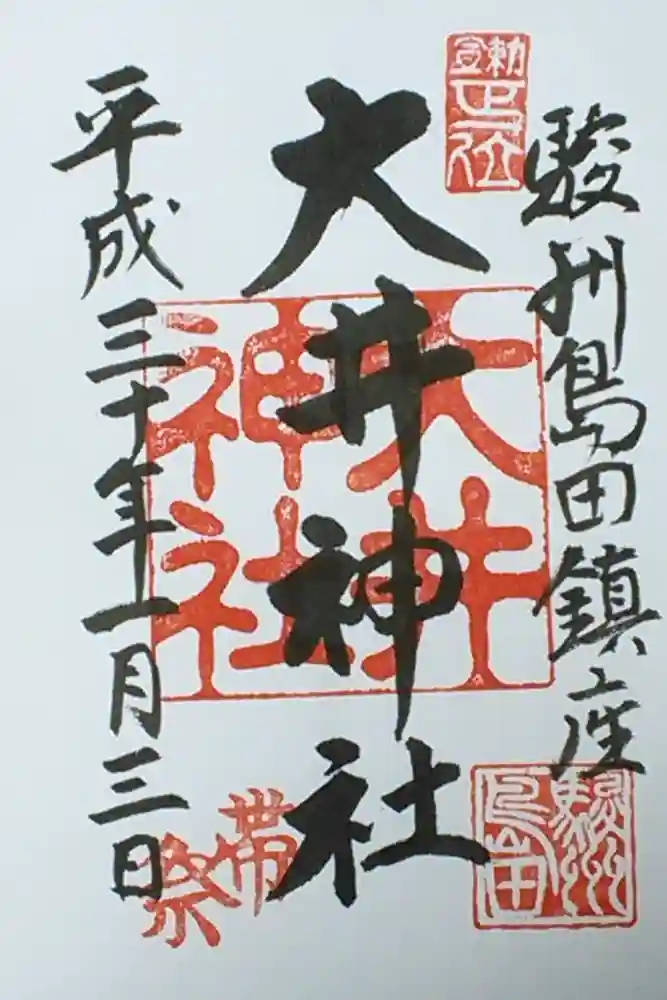 勅宣
正一位
駿州島田鎮座
駿州
島田
大井神社
大井
神社
平成三十年一月三日
帯
祭